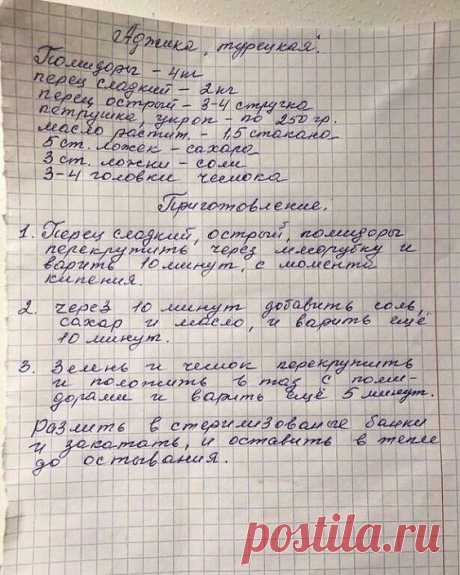 "Аджика, турецкая".
Помидоры – 4кг
перец сладкий – 2кг
перец острый – 3-4 стручка
петрушка, укроп – по 250 гр.
масло растит. – 1,5 стакана
5 ст. ложек – сахара
3 ст. ложки – соли
3-4 головки чеснока
Приготовление.
1. Перец сладкий, острый, помидоры
перекрутить через мясорубку и
варить 10 минут, с момента
кипения.
2. через 10 минут добавить соль,
сахар и масло, и варить ещё
10 минут.
3. Зелень и чеснок перекрутить
и положить в таз с поми-
дорами и варить ещё 5 минут.
Разлить в стерилизованые банки
и закатать, и оставить в тепле
до остывания.
postila.ru